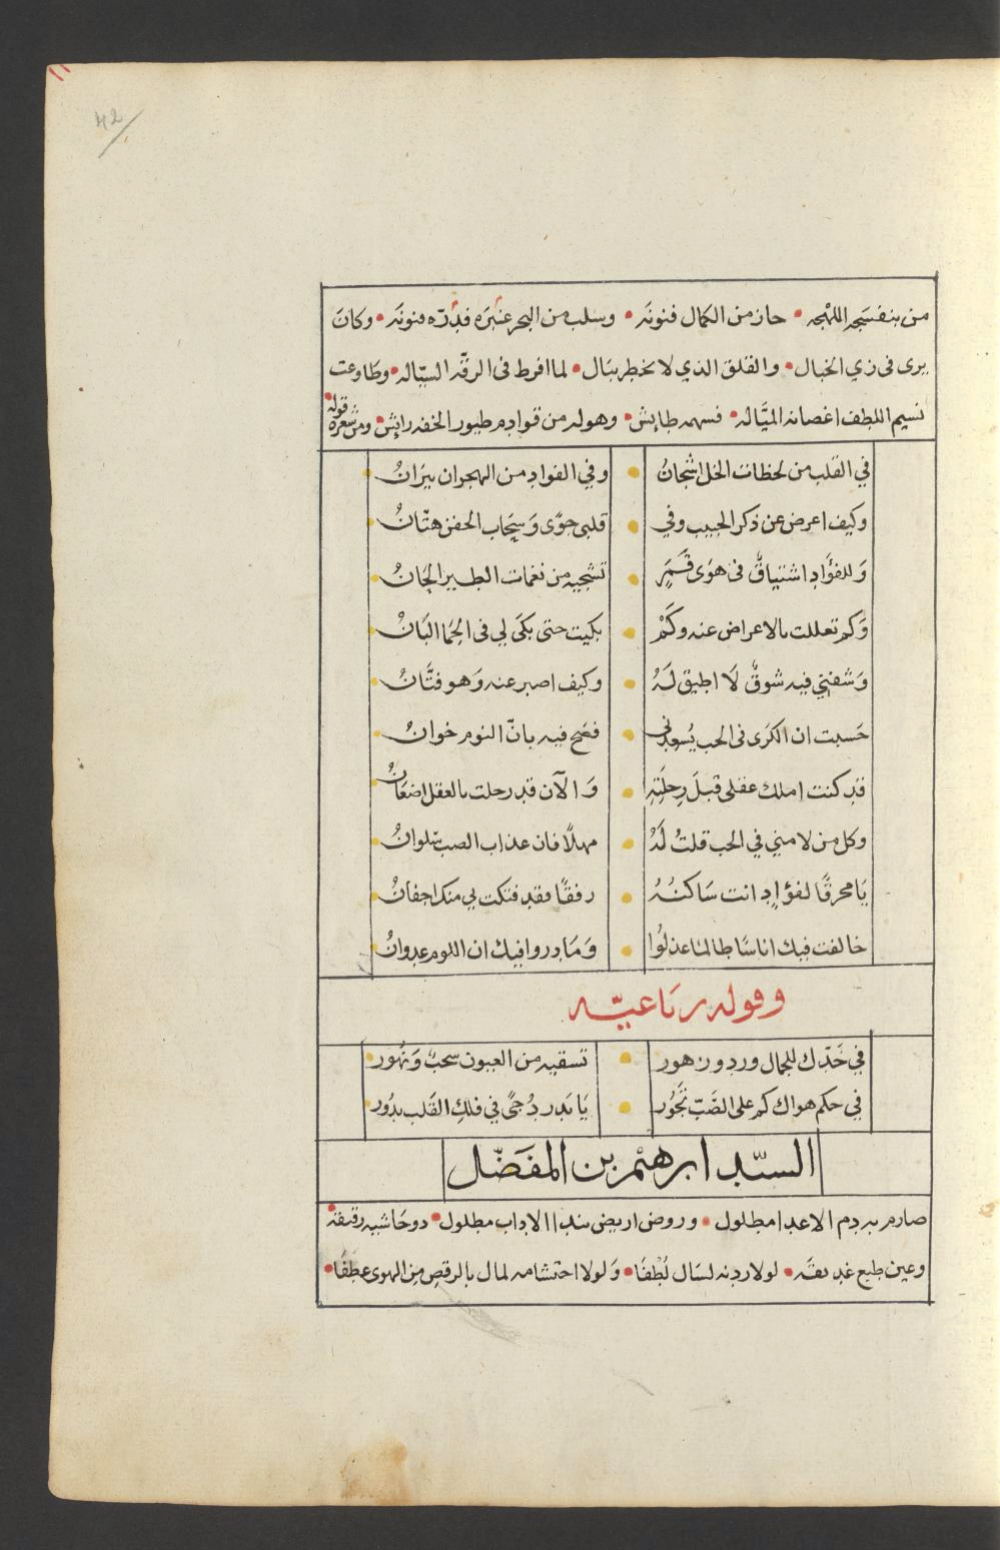 42
من بنفسجه المهجه • حاز من الكمال فنونه • وسلب من البحر عنبره فدرّه فنونه • وكان
يرى في زي الخيال • والقلق الذي لا يخطر ببال • لما افرط في الرقّه السيّاله • وطاوعت
نسيم اللطف اغصانه الميَّاله • فسهمه طايش • وهو له من قوادم طيور الخفه رايش • ومن شعره قوله
في القلب من لحظات الخل اشجانُ • وفي الفواد من الهجران نيرَانُ
وكيف اعرض عن ذكر الحبيب وفي • قلبى جوًى وَسحَاب الجفن هتّانُ
وَللفؤَاد اشتياقٌ فى هوَى قَمَرٍ • تشجيه من نغمات الطير الحَانُ
وَكم تعللت بالاعراض عنه وكَمْ • بكيت حتى بكَى لي فى الحِمَا البَانُ
وَشفنِي فيه شوقٌ لَا اطيق لَهُ • وكيف اصبر عنه وَهو فتَّانُ
حَسبت ان الكرَى فى الحب يُسعدنى • فصَح فيه بانّ النوم خوانُ
قد كنت املك عقلى قبلَ رِحلَتِهِ • وَالآن قد رحلت بالعقل اضعَانُ
وكل من لامني في الحب قلتُ لَهُ • مهلًا فان عذاب الصب سلوانُ
يَا محرقًا لفؤادٍ انت سَاكنُهُ • رفقًا فقد فتكت بي منك اجفانُ
خالفت فيك اناسًا طالما عذلُوا • وَمَا دروا فيك ان اللوم عدوانُ
وقوله رباعيّه
في خَدّك للجمال ورد وزهور • تسقيه من العيون سحبٌ وَنهُور
في حكم هواك كم على الصَبّ تَجُور • يَا بَدر دُجىً في فلك القَلب يدُور
السيّد ابرهيم بن المفضّل
صارم بدم الاعدا مطلول • وروض اريض بندا الاداب مطلول • ذو حَاشيه رقيقه
وعين طبع غدقه • لولا ردنه لسَال لُطْفًا • وَلولا احتشامه لمال بالرقص من الهوى عطفًا •